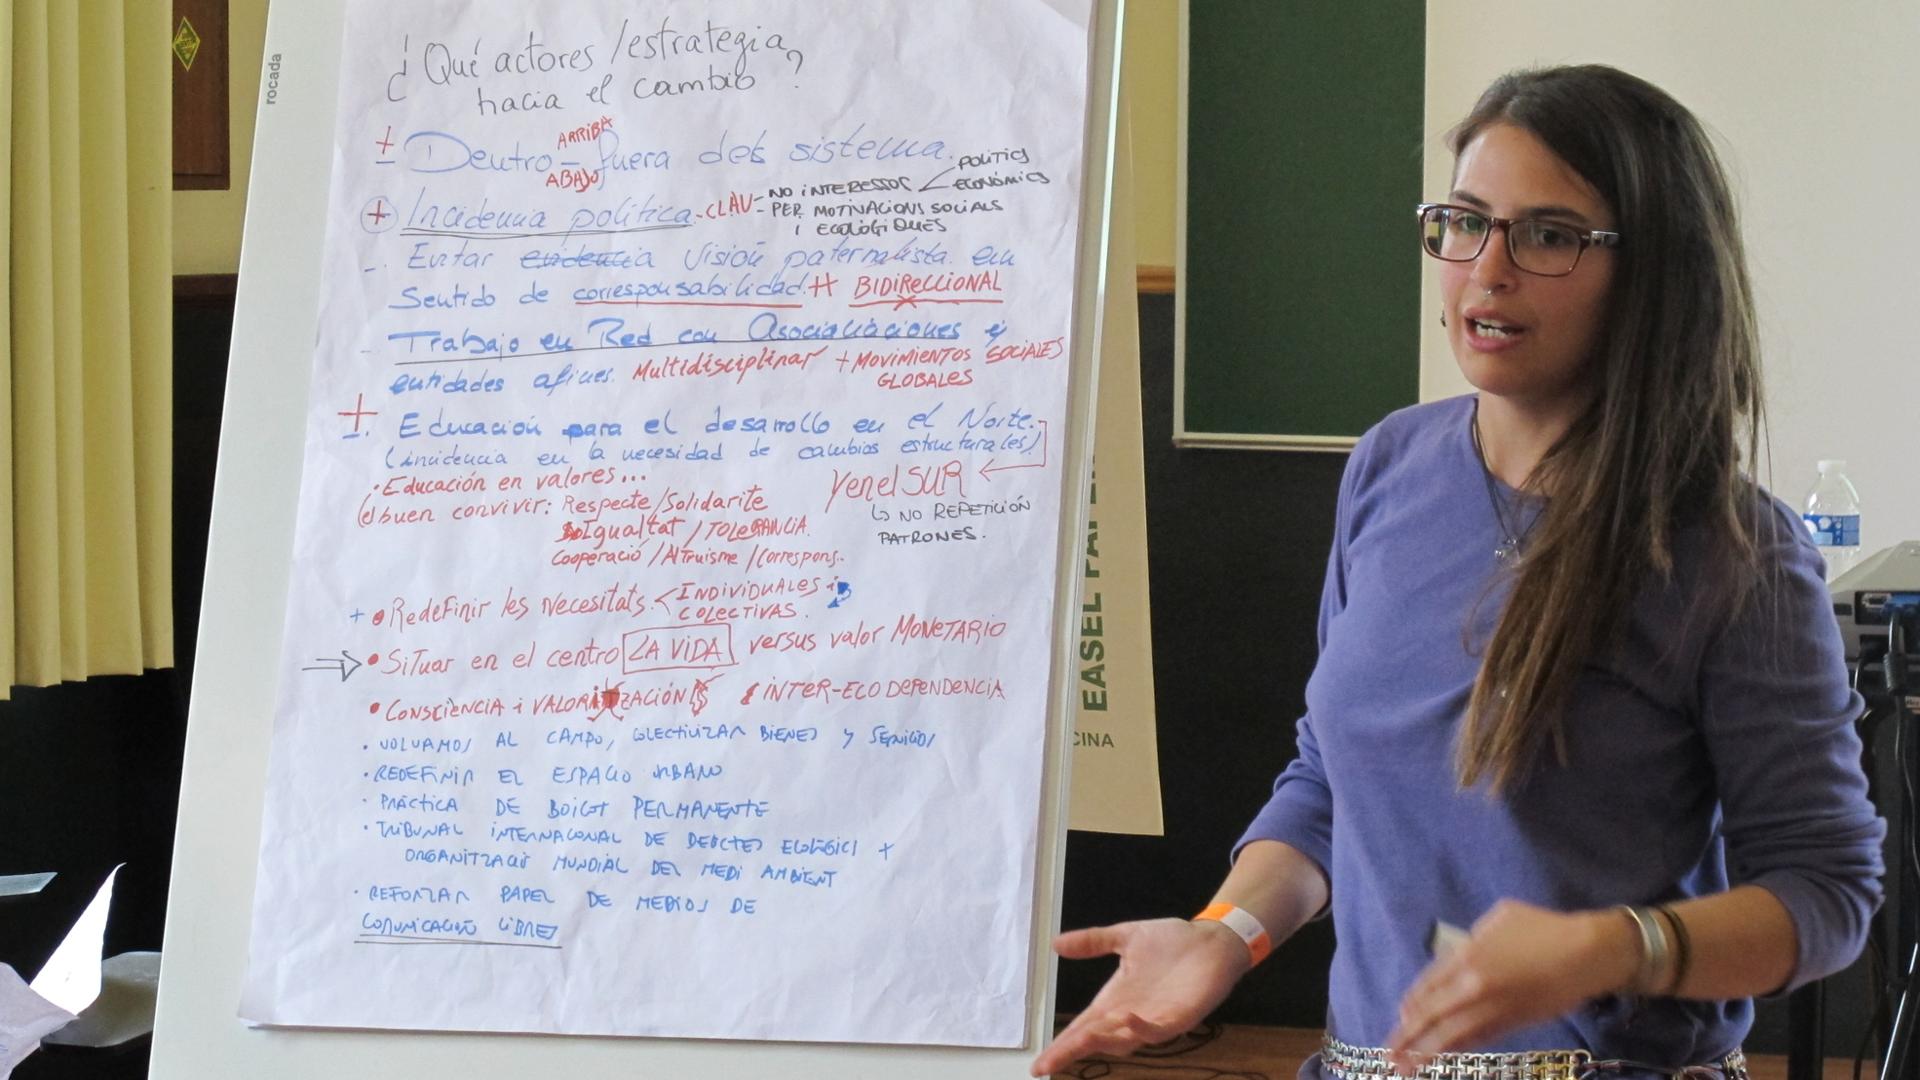 rocada
¿Qué actores/estrategia
hacia el cambio?
ARRIBA
± Dentro - fuera del sistema.
ABAJO
+ Incidencia política - CLAU = NO INTERESSOS < POLÍTICS
ECONÒMICS
PER MOTIVACIONS SOCIALS
I ECOLÒGIQUES
-. Evitar evidencia visión paternalista. en
sentido de corresponsabilidad. ++ BIDIRECCIONAL
- Trabajo en Red con Asociaciaciones y
entidades afines. Multidisciplinar + MOVIMIENTOS SOCIALES
GLOBALES
±. Educación para el desarrollo en el Norte.
(incidencia en la necesidad de cambios estructurales)
· Educación en valores...
Y en el SUR
(el buen convivir: Respecte/Solidarite
↳ NO REPETICIÓN
Igualtat / TOLERANCIA.
PATRONES.
Cooperació / Altruisme / Correspons..
+ • Redefinir les Necesitats. < INDIVIDUALES i
COLECTIVAS.
⇒ • Situar en el centro LA VIDA versus valor MONETARIO
• CONSCIENCIA i VALORIZACIÓN INTER-ECO DEPENDENCIA
· VOLVAMOS AL CAMPO, COLECTIVIZAR BIENES Y SERVICIOS
· REDEFINIR EL ESPACIO URBANO
· PRÁCTICA DE BOICOT PERMANENTE
· TRIBUNAL INTERNACIONAL DE DELICTES ECOLÒGICS +
ORGANITZACIÓ MUNDIAL DEL MEDI AMBIENT
· REFORZAR PAPEL DE MEDIOS DE
COMUNICACIÓN LIBRES
EASEL
CINA